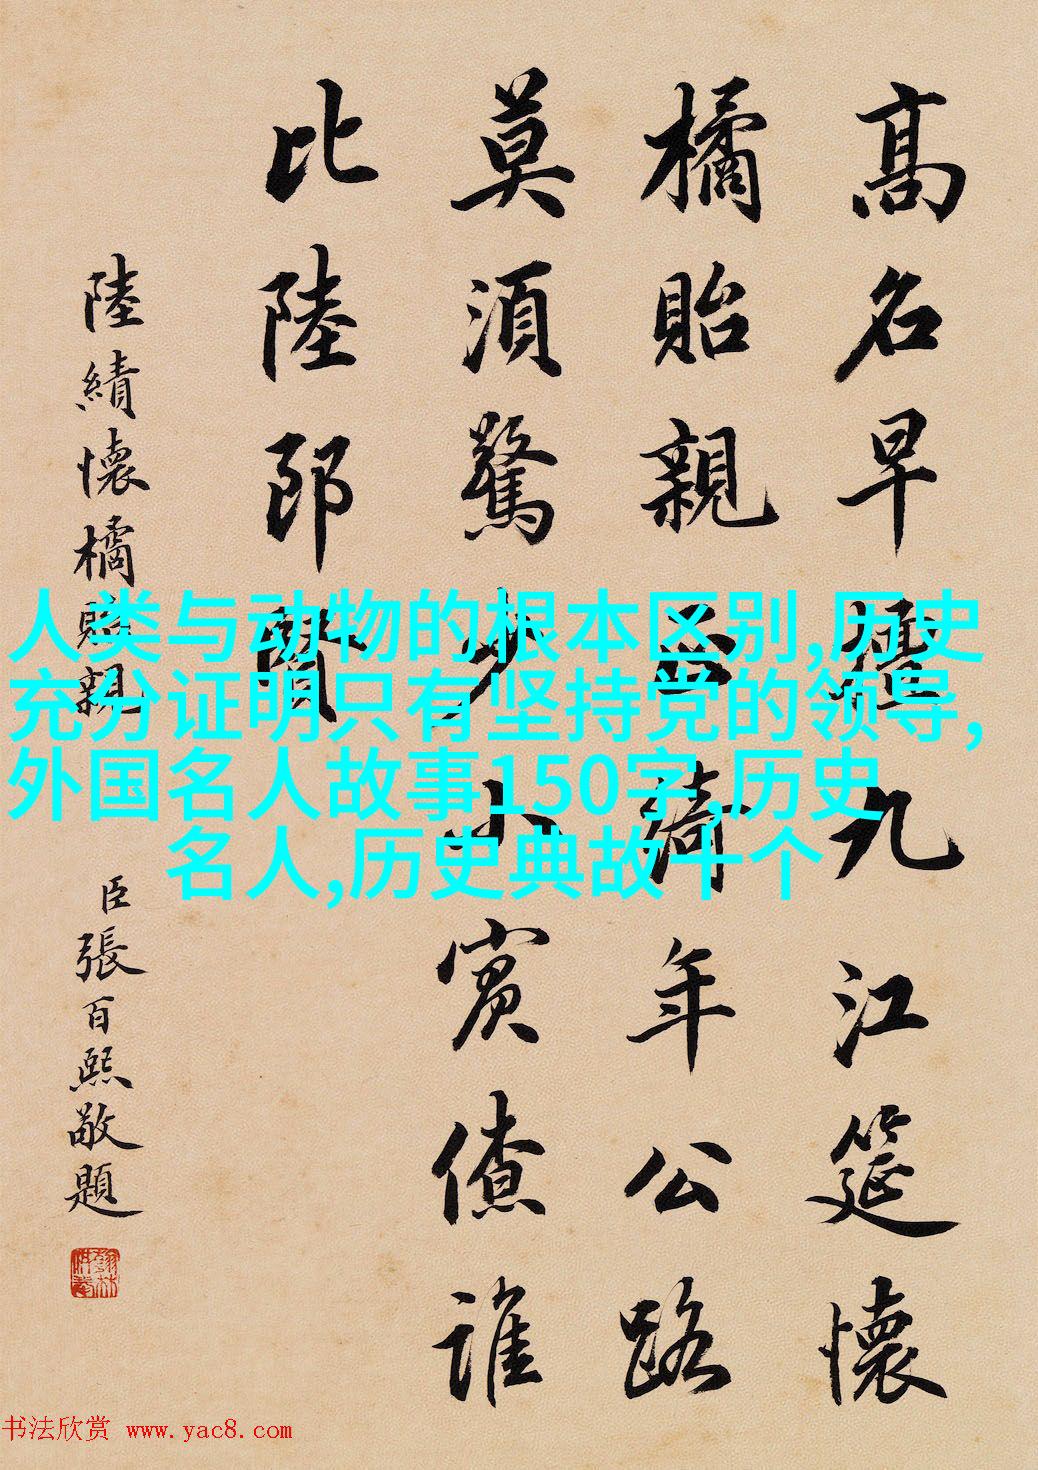 高名早擅九江筵懷
橘貽親正綺年公路
莫須驚少小賓僚誰
比陸郎賢
陸績懷橘貽親
臣張百熙敬題
人类与动物的根本区别,历史
充分证明只有坚持党的领导,
外国名人故事150字,历史
名人,历史典故十个
书法欣赏 www.yac8.com